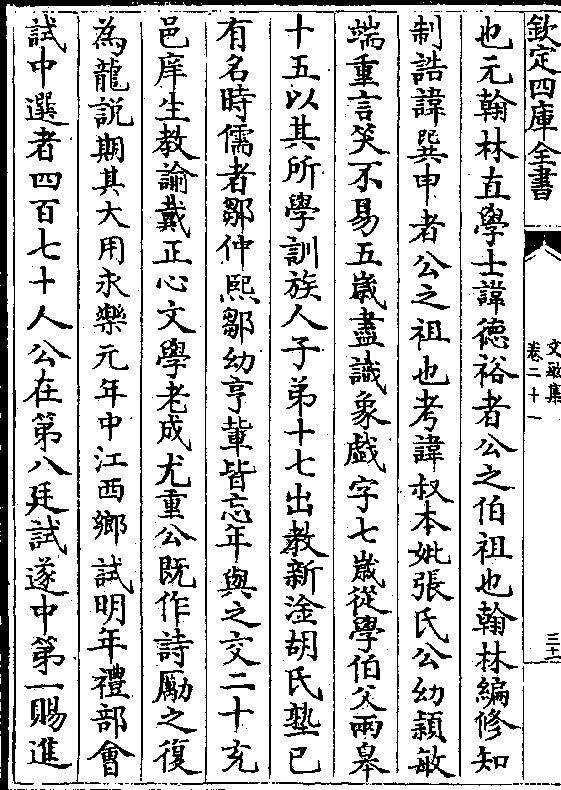 欽定四庫全書
文敏集
卷二十一
三十一
也元翰林直學士諱德裕者公之伯祖也翰林編修知
制誥諱㢲申者公之祖也考諱叔本妣張氏公幼穎敏
端重言笑不易五歲盡識象戲字七歲從學伯父兩臯
十五以其所學訓族人子弟十七出教新淦胡氏塾已
有名時儒者鄒仲熙鄒幼亨輩皆忘年與之交二十充
邑庠生教諭戴正心文學老成尤重公既作詩勵之復
為龍說期其大用永樂元年中江西鄉試明年禮部會
試中選者四百七十人公在第八廷試遂中第一賜進